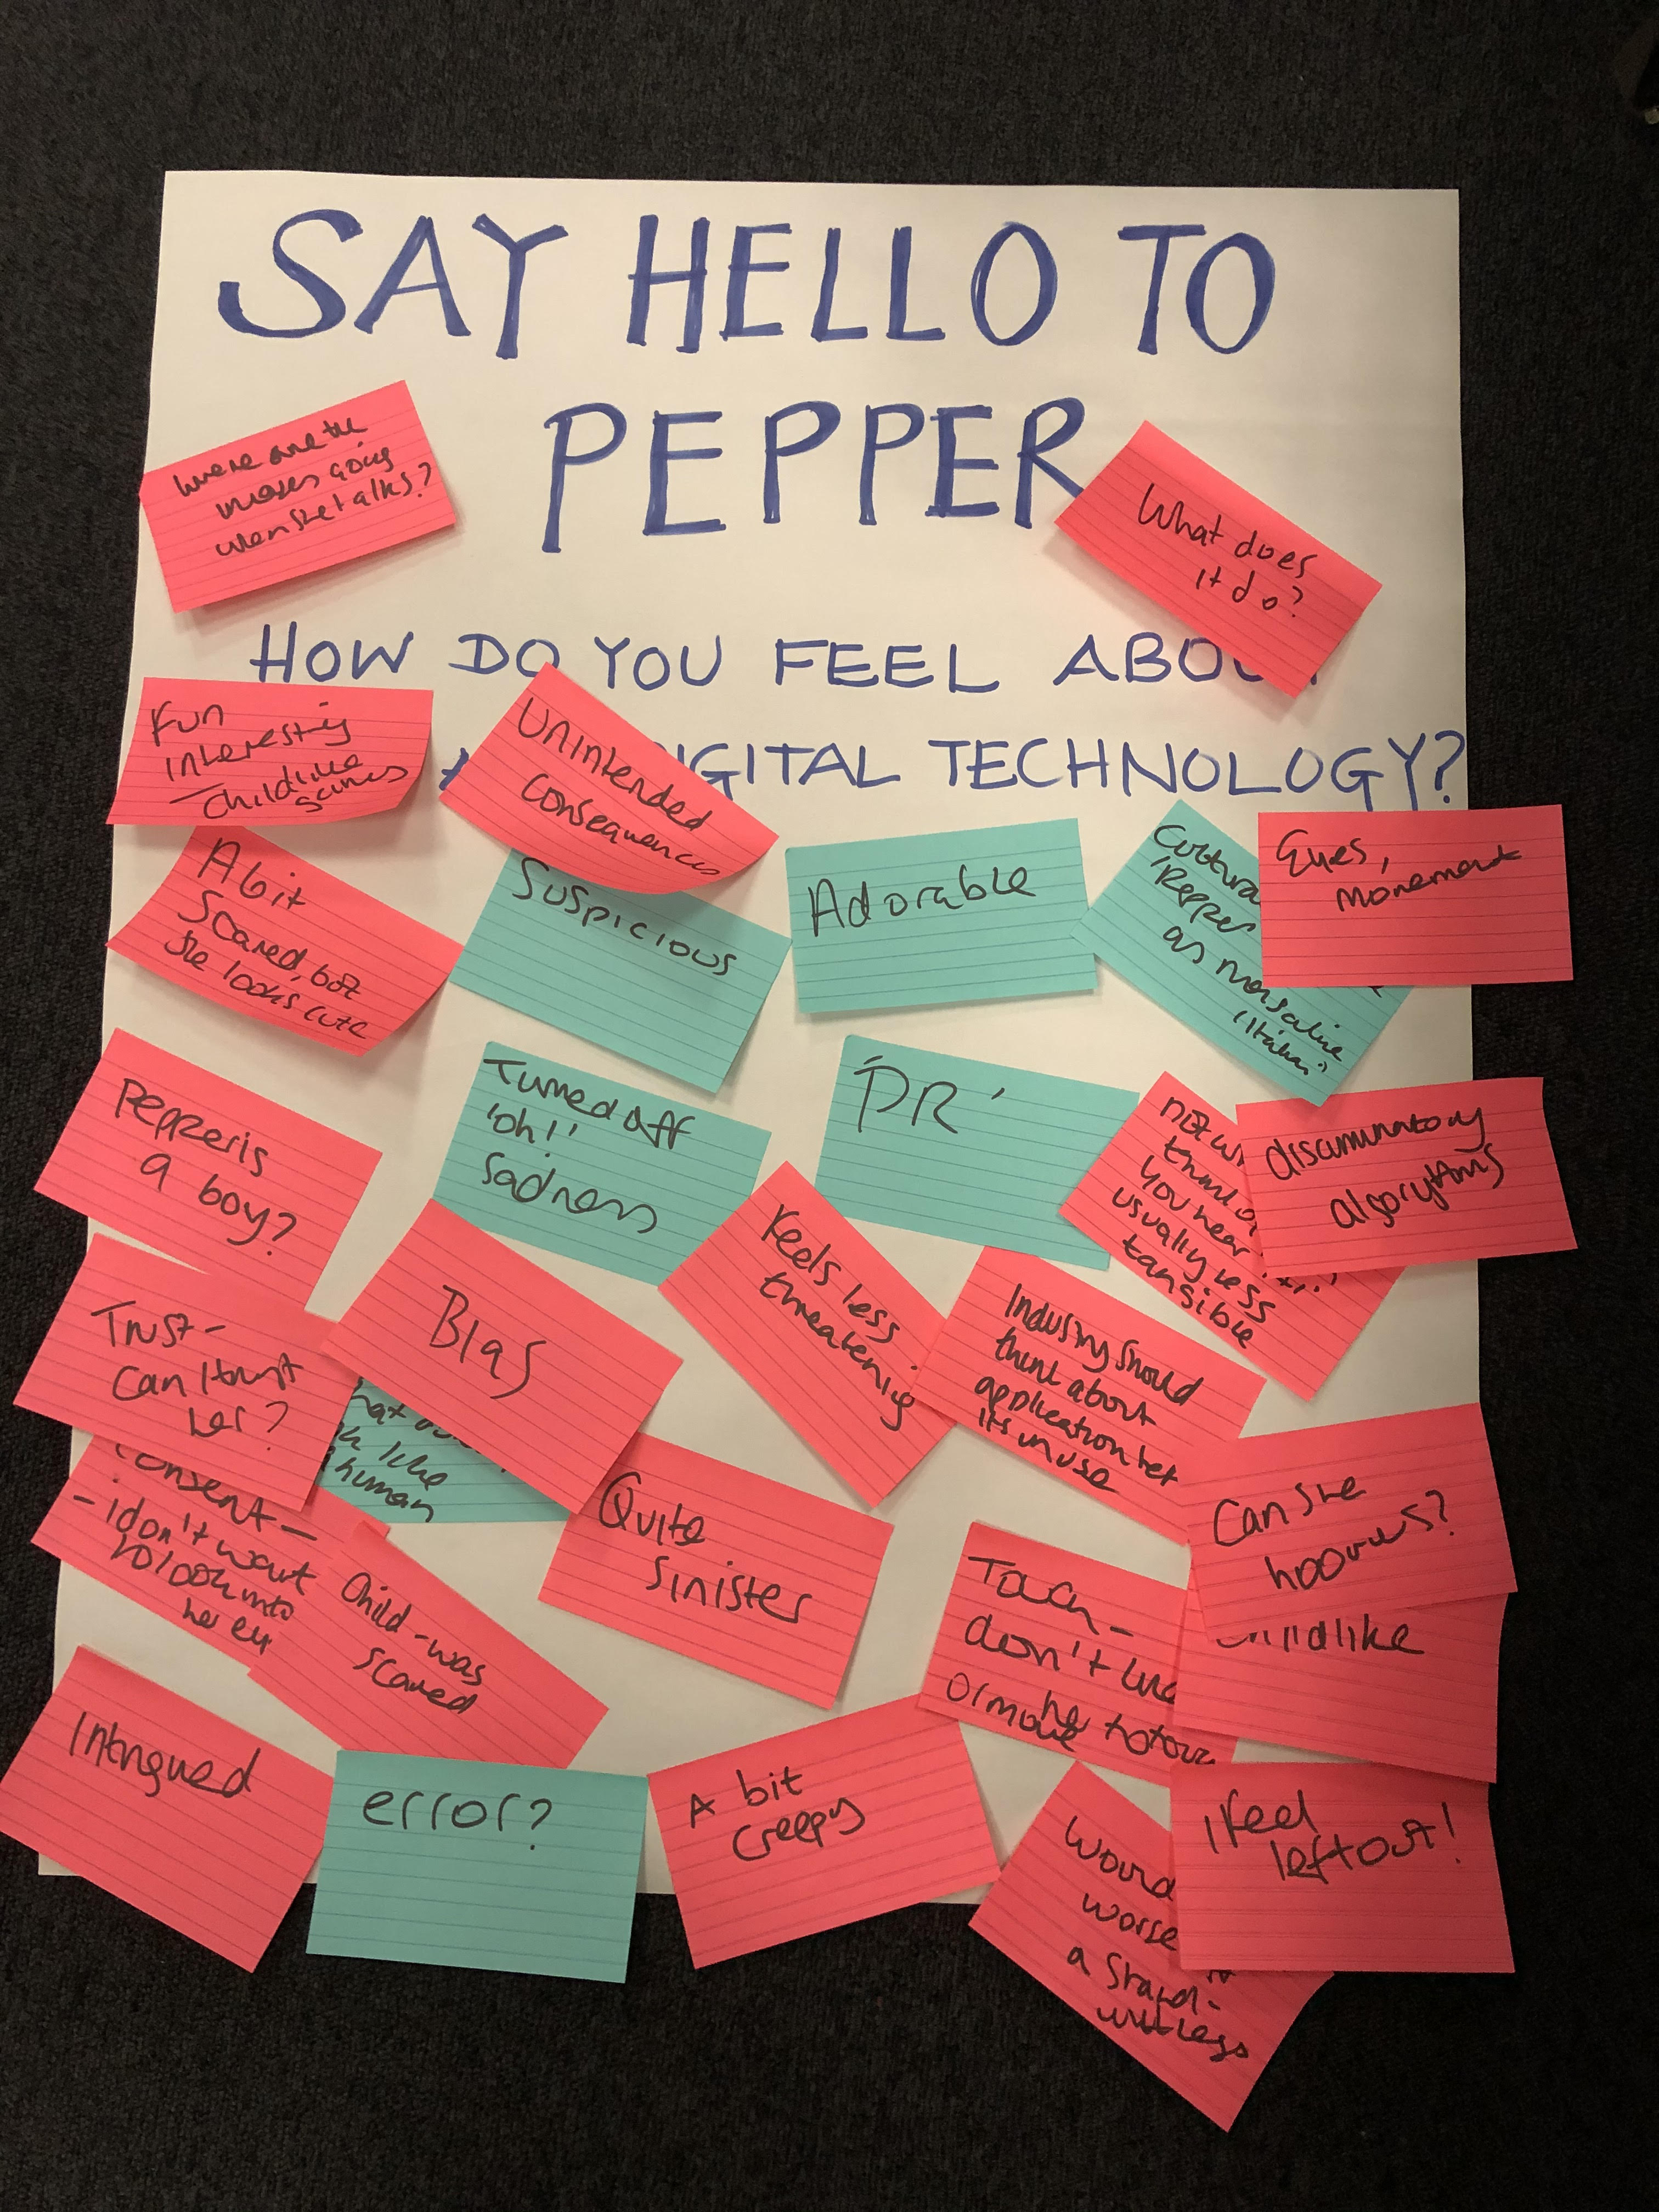 SAY HELLO TO
PEPPER
Where are the
images going
when she talks?
What does
it do?
HOW DO YOU FEEL ABOU
DIGITAL TECHNOLOGY?
Fun
Interesting
Childlike
Unintended
consequences
A bit
scared, but
she looks cute
Suspicious
Adorable
Cultura
'Pepper
as
(Italian)
Eyes,
movement
Pepper is
a boy?
Turned off
'oh!'
sadness
'PR'
not w
think o
you hear
usually less
tangible
discriminatory
algorythms
Trust -
can I trust
her?
Bias
Feels less
threatening
Industry should
think about
application bef
its in use
like
human
Consent -
- i don't want
to look into
her ey
Child - was
scared
Quite
sinister
Touch -
don't
or
Can she
hoovers?
childlike
Intrigued
error?
A bit
creepy
Would
worse
a stand-
with legs
I feel
left out!